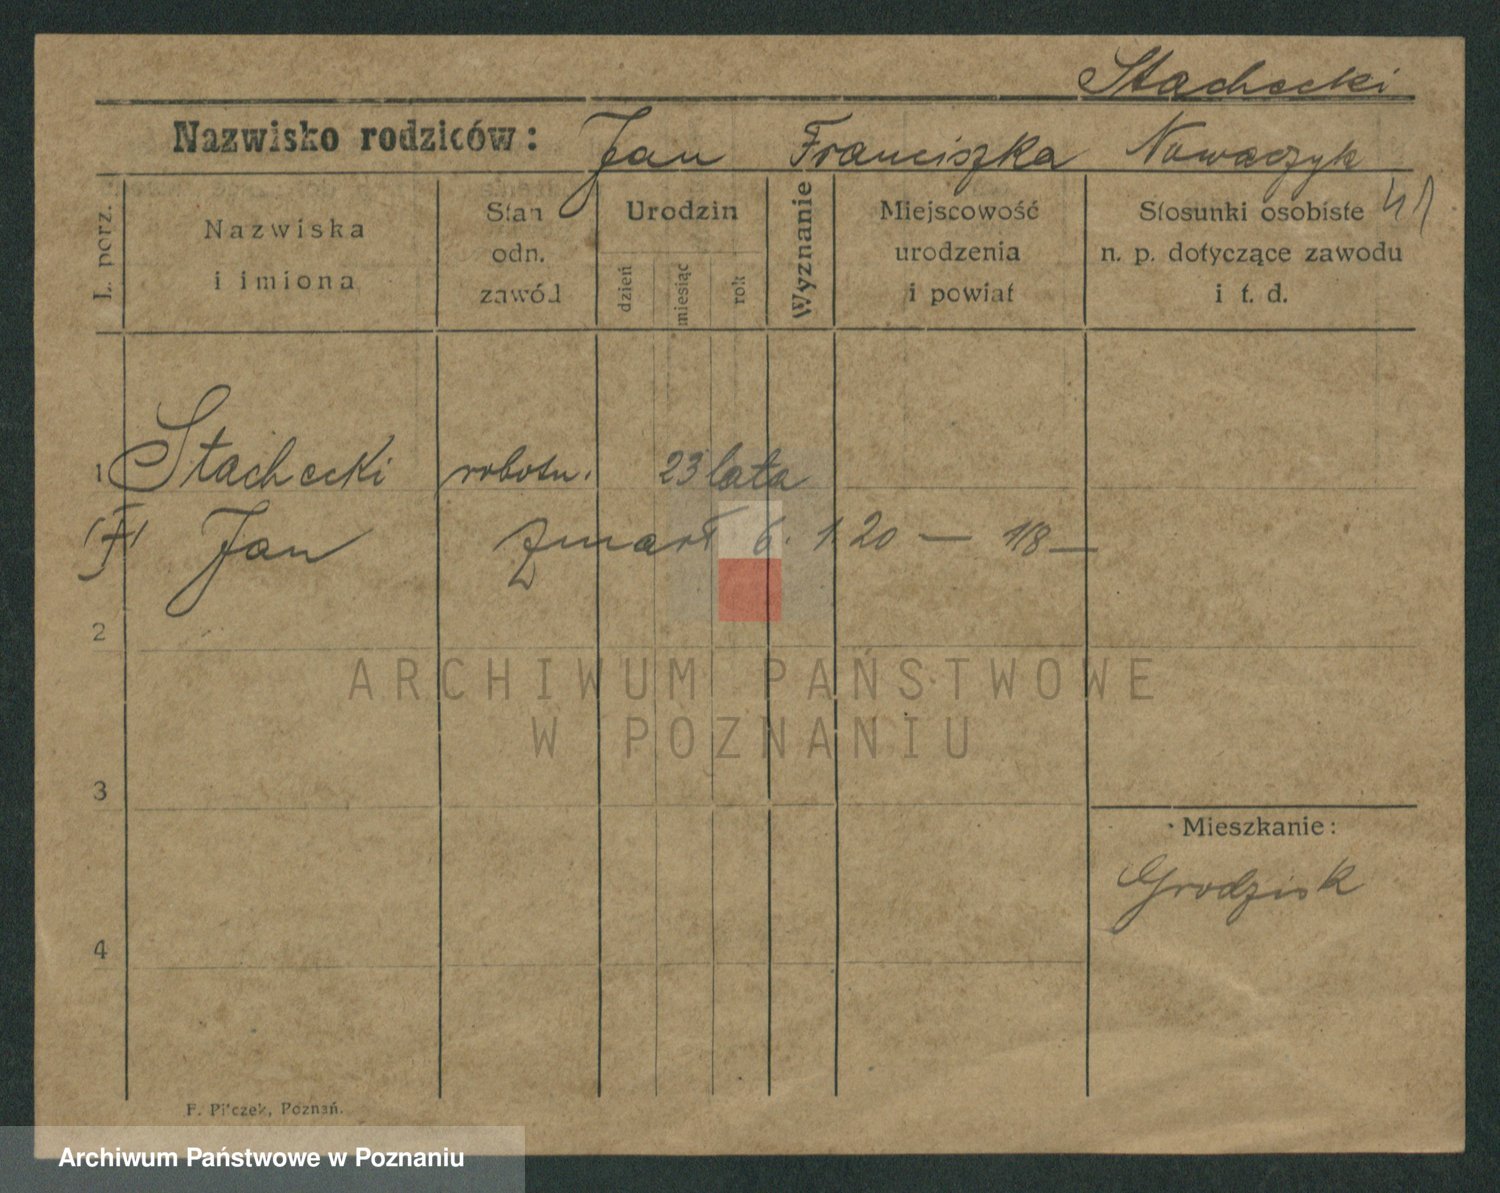 Stachecki
Nazwisko rodziców: Jan Franciszka Nowaczyk
L. porz.
Nazwiska
i imiona
Stan
odn.
zawód
Urodzin
dzień
miesiąc
rok
Wyznanie
Miejscowość
urodzenia
i powiat
Stosunki osobiste
n. p. dotyczące zawodu
i t. d.
1 Stachecki robotn. 23 lata
Jan zmarł 6. 1. 20 — 1/8 —
2
ARCHIWUM PAŃSTWOWE
W POZNANIU
3
Mieszkanie:
Grodzisk
4
F. Pilczek, Poznań.
Archiwum Państwowe w Poznaniu